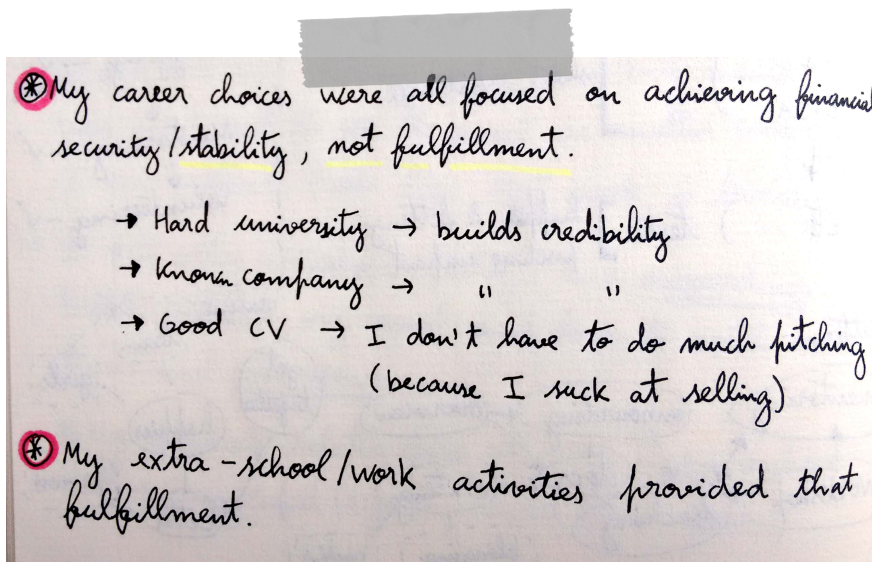 * My career choices were all focused on achieving financial
security/stability, not fulfillment.
→ Hard university → builds credibility
→ Known company → " "
→ Good CV → I don't have to do much pitching
(because I suck at selling)
* My extra-school/work activities provided that
fulfillment.